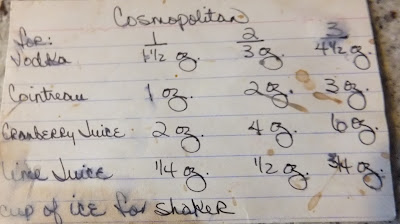 Cosmopolitan
for: 1 2 3
Vodka 1 1/2 oz. 3 oz. 4 1/2 oz.
Cointreau 1 oz. 2 oz. 3 oz.
Cranberry Juice 2 oz. 4 oz. 6 oz.
Lime Juice 1/4 oz. 1/2 oz. 3/4 oz.
cup of ice for shaker